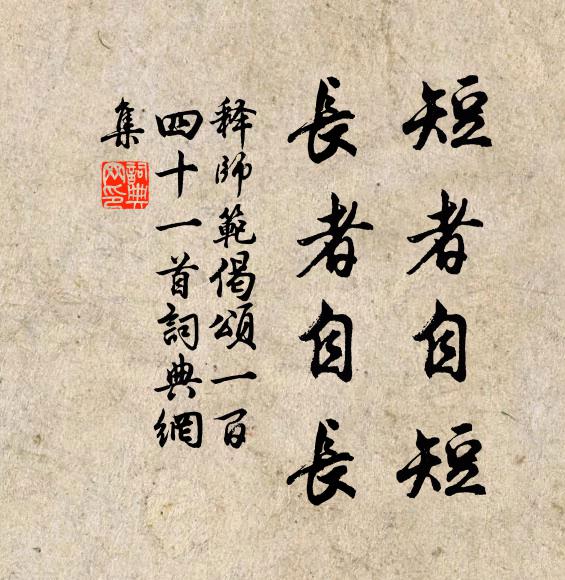 短者自短
長者自長
释師範偈頌一百
四十一首詞典網
集
詞典
网印